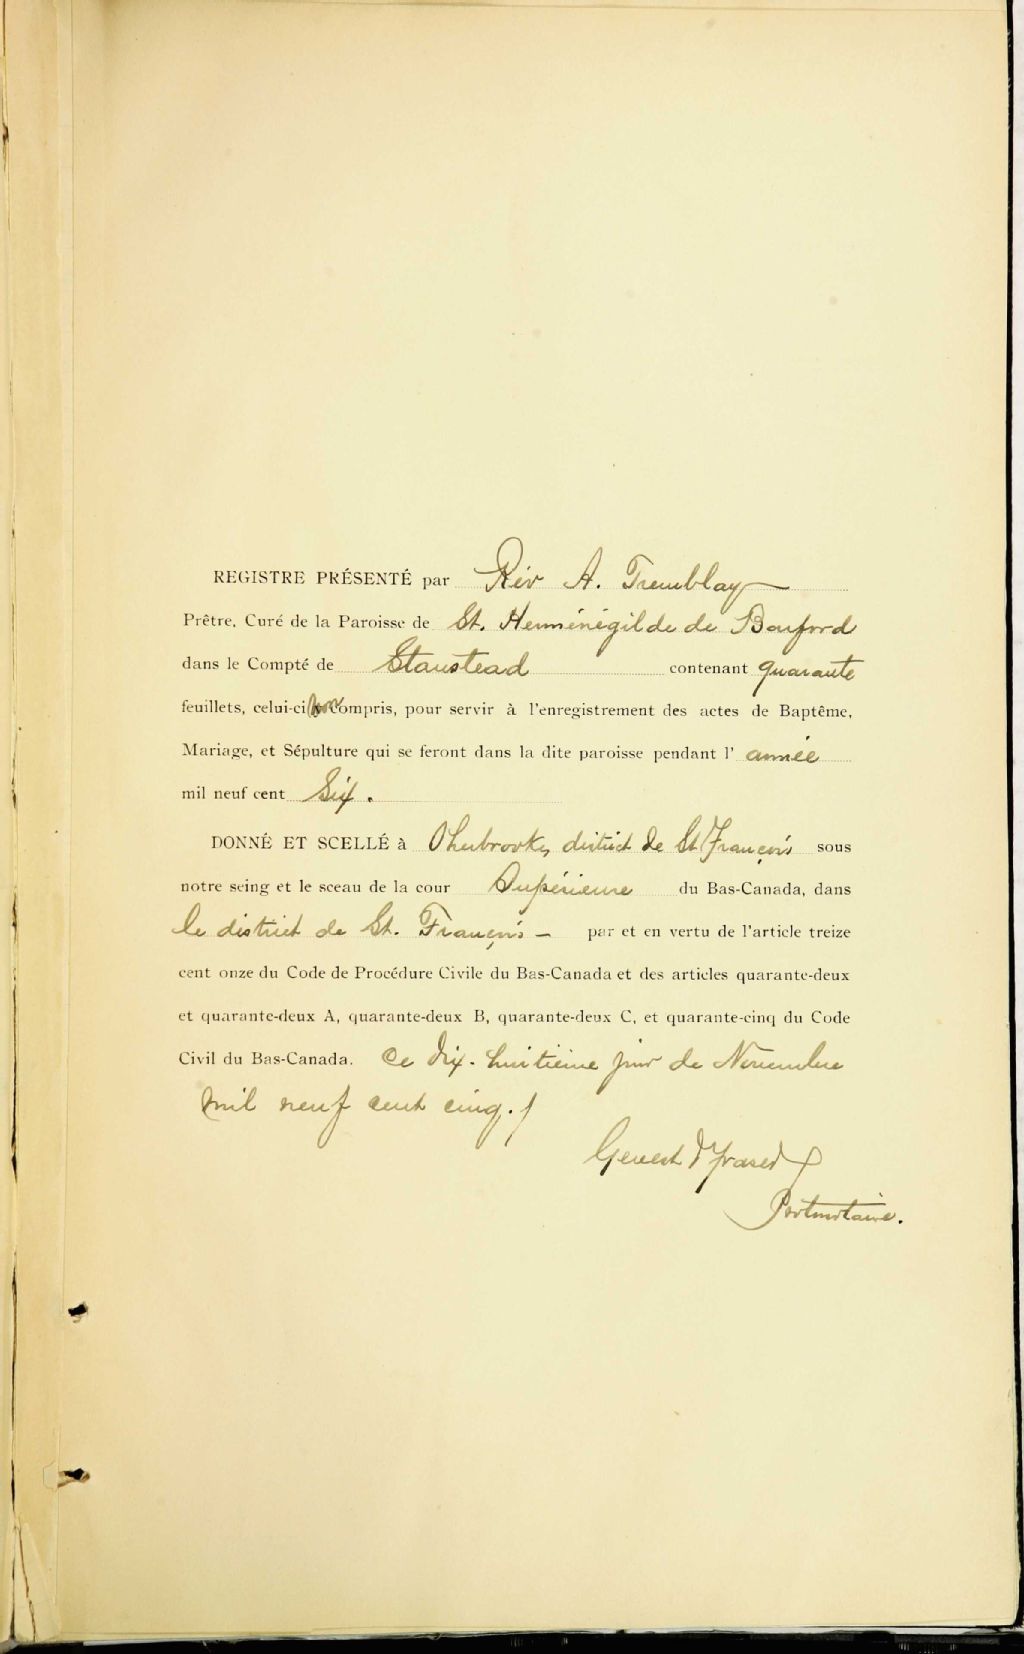 REGISTRE PRÉSENTÉ par Rév A. Tremblay
Prêtre, Curé de la Paroisse de St. Herménégilde de Barford
dans le Compté de Stanstead contenant quarante
feuillets, celui-ci non compris, pour servir à l'enregistrement des actes de Baptême,
Mariage, et Sépulture qui se feront dans la dite paroisse pendant l' année
mil neuf cent Six.
DONNÉ ET SCELLÉ à Sherbrooke, district de St François sous
notre seing et le sceau de la cour Supérieure du Bas-Canada, dans
le district de St. François - par et en vertu de l'article treize
cent onze du Code de Procédure Civile du Bas-Canada et des articles quarante-deux
et quarante-deux A, quarante-deux B, quarante-deux C, et quarante-cinq du Code
Civil du Bas-Canada. Ce dix-huitième jour de Novembre
mil neuf cent cinq./
Genest & Fraser
Protonotaire.